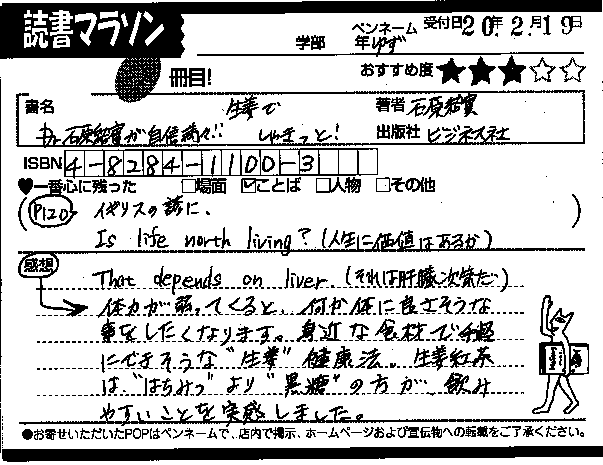 読書マラソン
学部 年 ペンネーム ゆず 受付日 20年2月19日
冊目! おすすめ度 ★★★☆☆
書名 生姜で 著者 石原結實
石原結實が自信満々!! しゃきっと! 出版社 ビジネス社
ISBN 4-8284-1100-3
♥一番心に残った □場面 ☑ことば □人物 □その他
(P120 イギリスの諺に、
Is life worth living? (人生に価値はあるか) )
感想 That depends on liver. (それは肝臓次第だ)
体力が弱ってくると、何か体に良さそうな
事をしたくなります。身近な食材で手軽
にできそうな"生姜"健康法。生姜紅茶
は、"はちみつ"より"黒糖"の方が、飲み
やすいことを実感しました。
●お寄せいただいたPOPはペンネームで、店内で掲示、ホームページおよび宣伝物への転載をご了承ください。